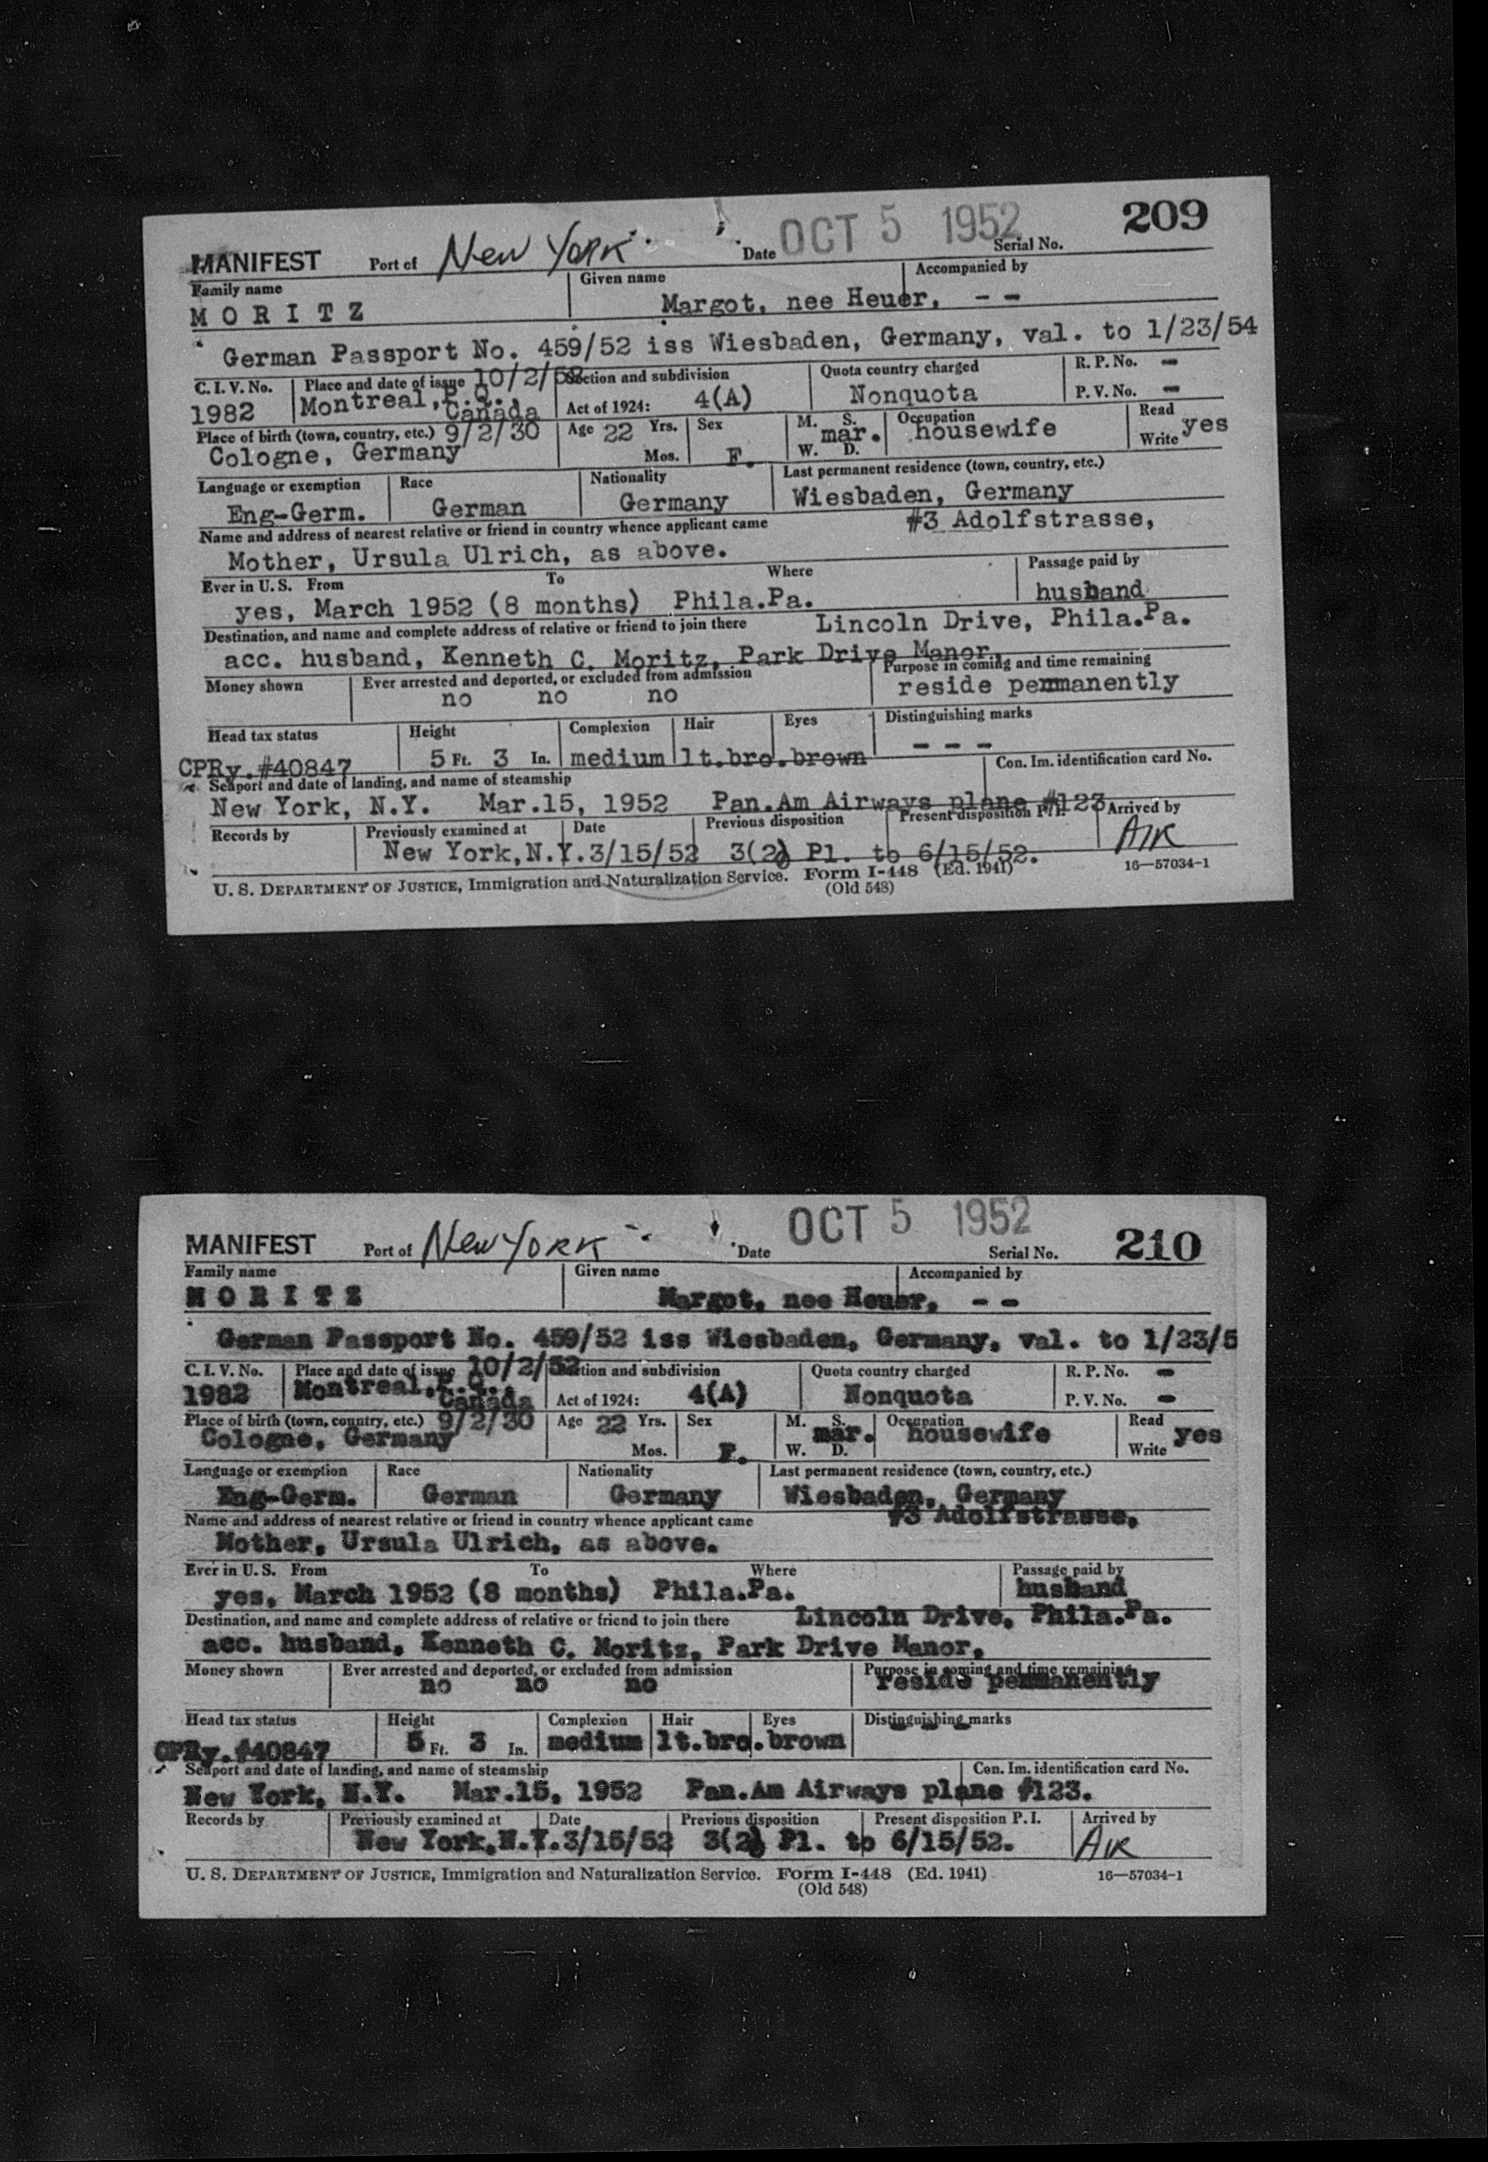 MANIFEST Port of New York Date OCT 5 1952 Serial No. 209
Family name Given name Accompanied by
MORITZ Margot, nee Heuer, - -
German Passport No. 459/52 iss Wiesbaden, Germany, val. to 1/23/54
C. I. V. No. Place and date of issue 10/2/52 Section and subdivision Quota country charged R. P. No. -
1982 Montreal, P.Q. Canada Act of 1924: 4(A) Nonquota P. V. No. -
Place of birth (town, country, etc.) 9/2/30 Age 22 Yrs. Sex M. S. Occupation Read
Cologne, Germany Mos. F. mar. W. D. housewife Write yes
Language or exemption Race Nationality Last permanent residence (town, country, etc.)
Eng-Germ. German Germany Wiesbaden, Germany
Name and address of nearest relative or friend in country whence applicant came #3 Adolfstrasse,
Mother, Ursula Ulrich, as above.
Ever in U. S. From To Where Passage paid by
yes, March 1952 (8 months) Phila.Pa. husband
Destination, and name and complete address of relative or friend to join there Lincoln Drive, Phila.Pa.
acc. husband, Kenneth C. Moritz, Park Drive Manor,
Money shown Ever arrested and deported, or excluded from admission Purpose in coming and time remaining
no no no reside permanently
Head tax status Height Complexion Hair Eyes Distinguishing marks
CPRy.#40847 5 Ft. 3 In. medium lt.bro. brown - - -
Seaport and date of landing, and name of steamship Con. Im. identification card No.
New York, N.Y. Mar.15, 1952 Pan.Am Airways plane #123
Records by Previously examined at Date Previous disposition Present disposition P. I. Arrived by
New York,N.Y. 3/15/52 3(2) Pl. to 6/15/52. AIR
U. S. DEPARTMENT OF JUSTICE, Immigration and Naturalization Service. Form I-448 (Ed. 1941) 16—57034-1
(Old 548)
MANIFEST Port of New York Date OCT 5 1952 Serial No. 210
Family name Given name Accompanied by
MORITZ Margot, nee Heuer, - -
German Passport No. 459/52 iss Wiesbaden, Germany, val. to 1/23/5
C. I. V. No. Place and date of issue 10/2/52 Section and subdivision Quota country charged R. P. No. -
1982 Montreal, P.Q. Canada Act of 1924: 4(A) Nonquota P. V. No. -
Place of birth (town, country, etc.) 9/2/30 Age 22 Yrs. Sex M. S. Occupation Read
Cologne, Germany Mos. F. mar. W. D. housewife Write yes
Language or exemption Race Nationality Last permanent residence (town, country, etc.)
Eng-Germ. German Germany Wiesbaden, Germany
Name and address of nearest relative or friend in country whence applicant came #3 Adolfstrasse,
Mother, Ursula Ulrich, as above.
Ever in U. S. From To Where Passage paid by
yes, March 1952 (8 months) Phila.Pa. husband
Destination, and name and complete address of relative or friend to join there Lincoln Drive, Phila.Pa.
acc. husband, Kenneth C. Moritz, Park Drive Manor,
Money shown Ever arrested and deported, or excluded from admission Purpose in coming and time remaining
no no no reside permanently
Head tax status Height Complexion Hair Eyes Distinguishing marks
CPRy.#40847 5 Ft. 3 In. medium lt.bro. brown
Seaport and date of landing, and name of steamship Con. Im. identification card No.
New York, N.Y. Mar.15, 1952 Pan.Am Airways plane #123.
Records by Previously examined at Date Previous disposition Present disposition P. I. Arrived by
New York,N.Y. 3/15/52 3(2) Pl. to 6/15/52. AIR
U. S. DEPARTMENT OF JUSTICE, Immigration and Naturalization Service. Form I-448 (Ed. 1941) 16—57034-1
(Old 548)